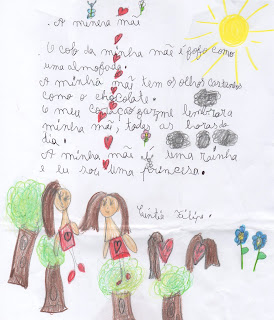 . A minha mãi
. O colo da minha mãe é fofo como
uma almofada.
A minha mãe tem os olhos castanhos
como o chocolate.
O meu coração faz-me lembrar a
minha mãi, todas as horas do
dia.
A minha mãe é uma rainha
e eu sou uma princesa.